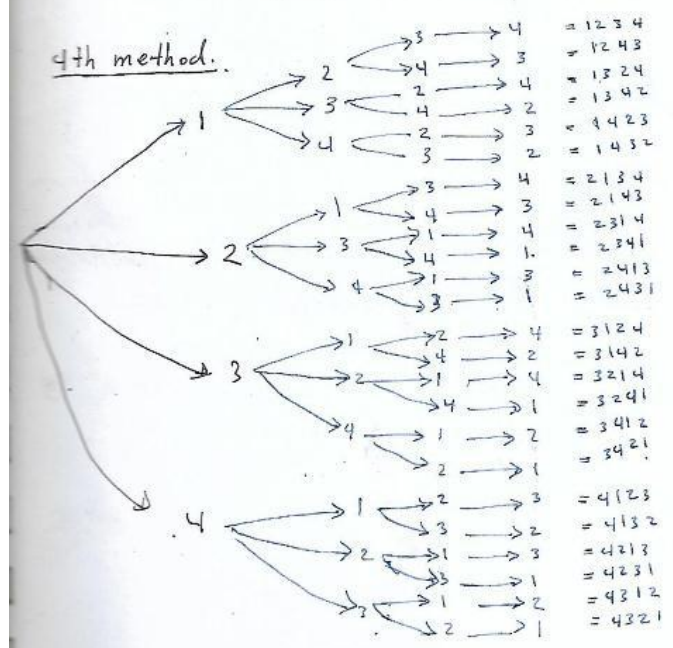 4th method.
1
2
3 → 4 = 1234
4 → 3 = 1243
3
2 → 4 = 1324
4 → 2 = 1342
4
2 → 3 = 1423
3 → 2 = 1432
2
1
3 → 4 = 2134
4 → 3 = 2143
3
1 → 4 = 2314
4 → 1. = 2341
4
1 → 3 = 2413
3 → 1 = 2431
3
1
2 → 4 = 3124
4 → 2 = 3142
2
1 → 4 = 3214
4 → 1 = 3241
4
1 → 2 = 3412
2 → 1 = 3421.
.4
1
2 → 3 = 4123
3 → 2 = 4132
2
1 → 3 = 4213
3 → 1 = 4231
3
1 → 2 = 4312
2 → 1 = 4321